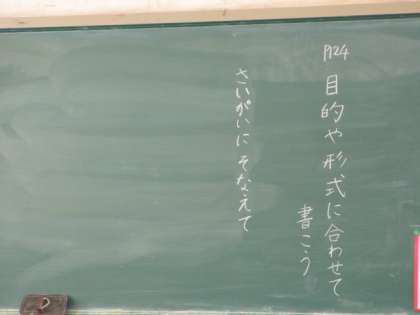 P124 目的や形式に合わせて
書こう
さいがいに そなえて